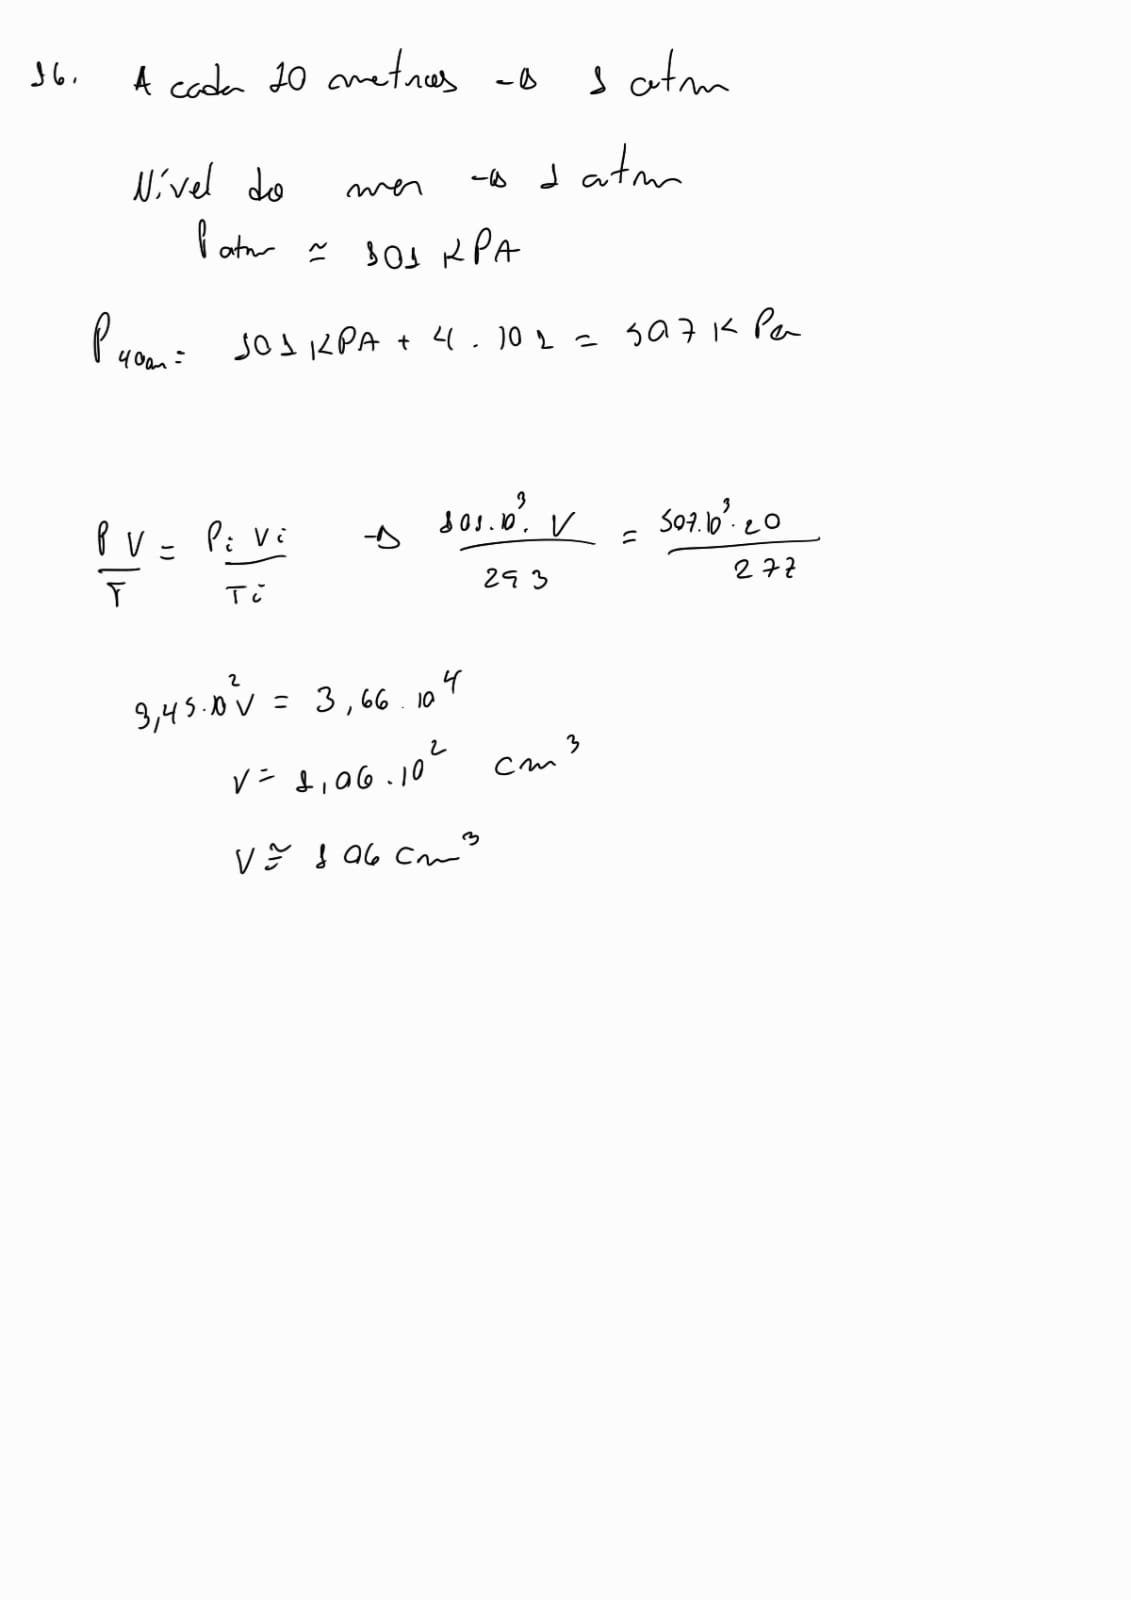 16. A cada 10 metros → 1 atm
Nível do mar → 1 atm
Patm ≃ 101 KPA
P40m = 101 KPA + 4 . 101 = 507 K Pa
P V / T = Pi Vi / Ti → 101.10³. V / 293 = 507.10³.20 / 277
3,45.10² V = 3,66 . 10⁴
V = 1,06 . 10² cm³
V ≅ 106 cm³